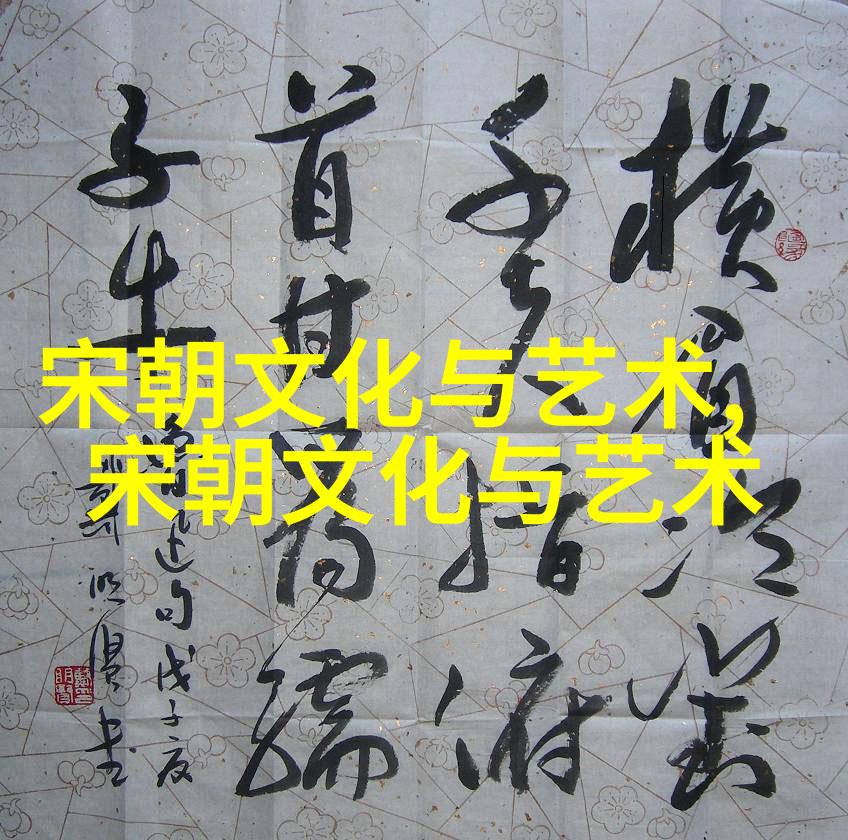 宋朝文化与艺术,
宋朝文化与艺术
横眉冷對
千夫指俯
首甘為孺
子牛
魯迅句戊子夏